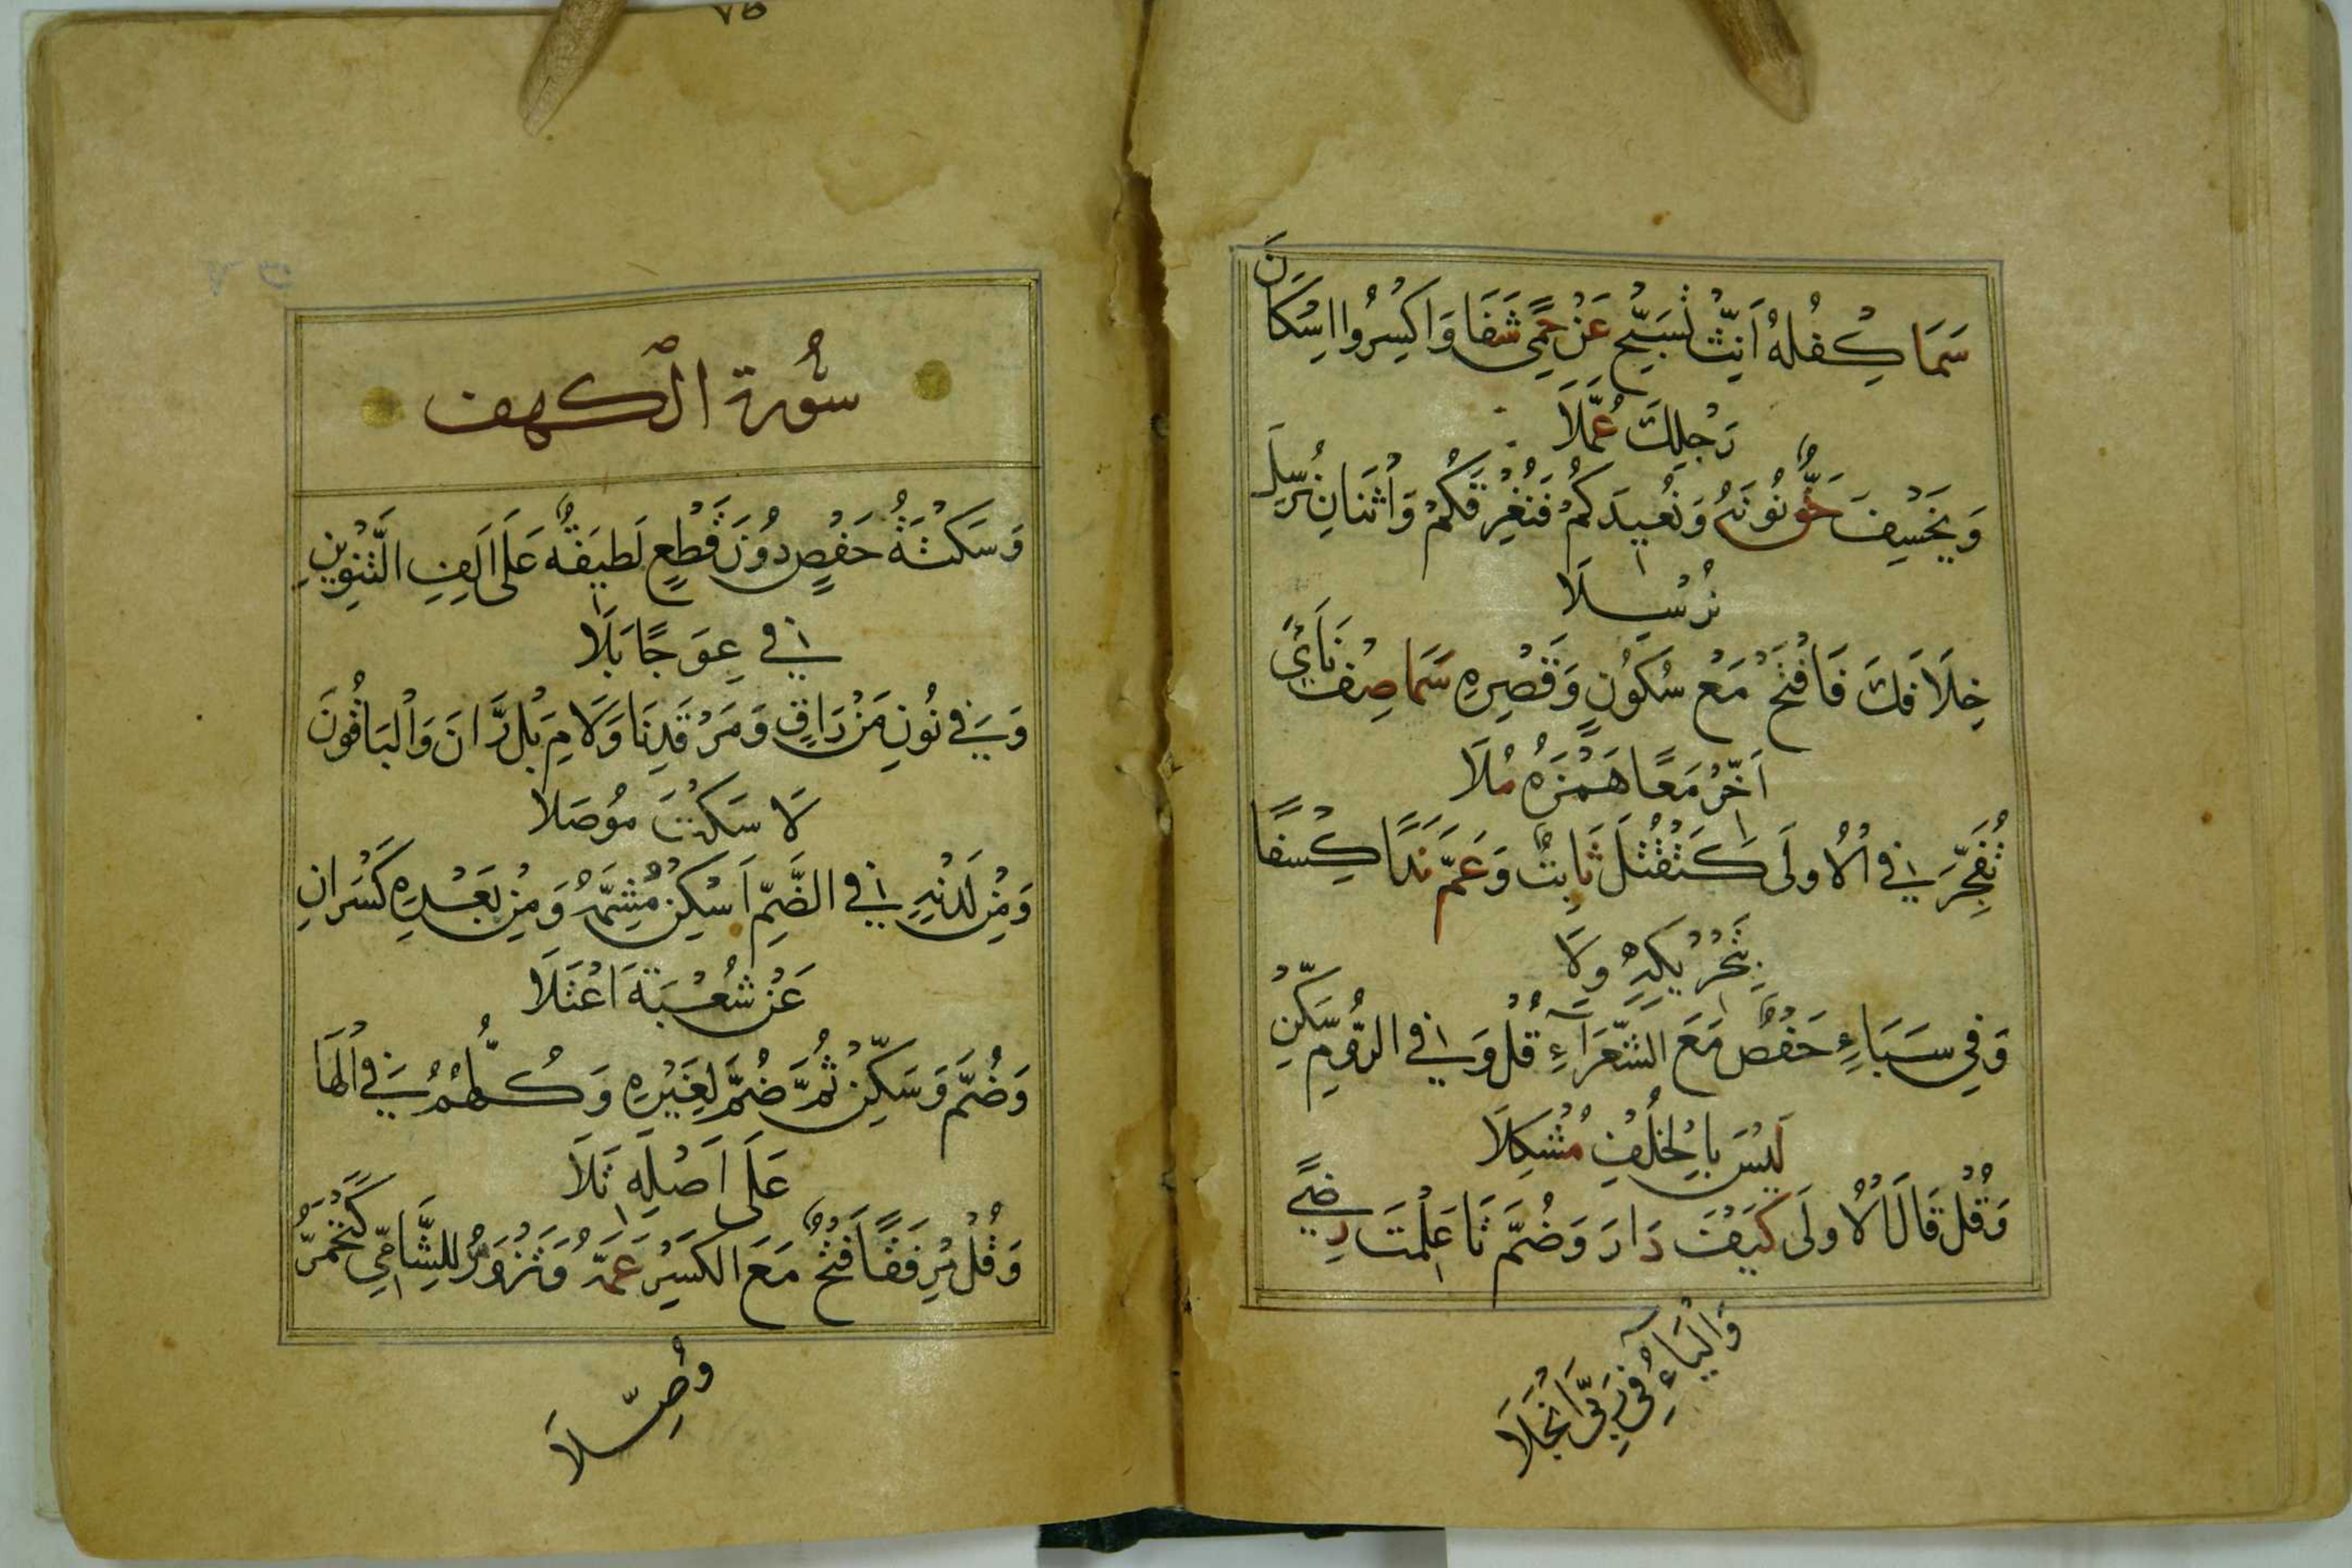 سَمَا كِفْلُهُ أَنِّثْ تُسَبِّحُ عَنْ حِمًى شَفَا وَاكْسِرُوا اِسْكَانَ
رَجْلِكَ عُمَّلَا
وَيَخْسِفَ حَقٌّ نُونُهُ وَنُعِيدَكُمْ فَنُغْرِقَكُمْ وَاثْنَانِ نُرْسِلَ
نُرْسِلَا
خِلَافَكَ فَافْتَحْ مَعْ سُكُونٍ وَقَصْرِهِ سَمَا صِفْ نَأَى
أَخِّرْ مَعًا هَمْزَهُ مُلَا
تُفَجِّرَ فِي الْأُولَى كَتَقْتُلَ ثَابِتٌ وَعَمَّ نَدًا كِسْفًا
بِتَحْرِيكِهِ وَلَا
وَفِي سَبَاءٍ حَفْصٌ مَعَ الشُّعَرَاءِ قُلْ وَفِي الرُّومِ سَكِّنْ
لَيْسَ بِالْخُلْفِ مُشْكِلَا
وَقُلْ قَالَ الْأُولَى كَيْفَ دَارَ وَضُمَّ تَا عَلِمْتَ رِضًى
وَالْيَاءُ فِي رَبِّيَ انْجَلَا
٧٥
سُورة الْكهف
وَسَكْتَةُ حَفْصٍ دُونَ قَطْعٍ لَطِيفَةٌ عَلَى أَلِفِ التَّنْوِينِ
فِي عِوَجًا بَلَا
وَفِي نُونِ مَنْ رَاقٍ وَمَرْقَدِنَا وَلَامِ بَلْ رَانَ وَالْبَاقُونَ
لَا سَكْتَ مُوصَلَا
وَمِنْ لَدْنِهِ فِي الضَّمِّ أَسْكِنْ مُشِمَّهُ وَمِنْ بَعْدِهِ كَسْرَانِ
عَنْ شُعْبَةَ اعْتَلَا
وَضُمَّ وَسَكِّنْ ثُمَّ ضُمَّ لِغَيْرِهِ وَكُلُّهُمُ فِي الْهَا
عَلَى أَصْلِهِ تَلَا
وَقُلْ مِرْفَقًا فَتْحٌ مَعَ الْكَسْرِ عَمَّهُ وَتَزْوَرُّ لِلشَّامِي كَتَحْمَرُّ
وُصِّلَا